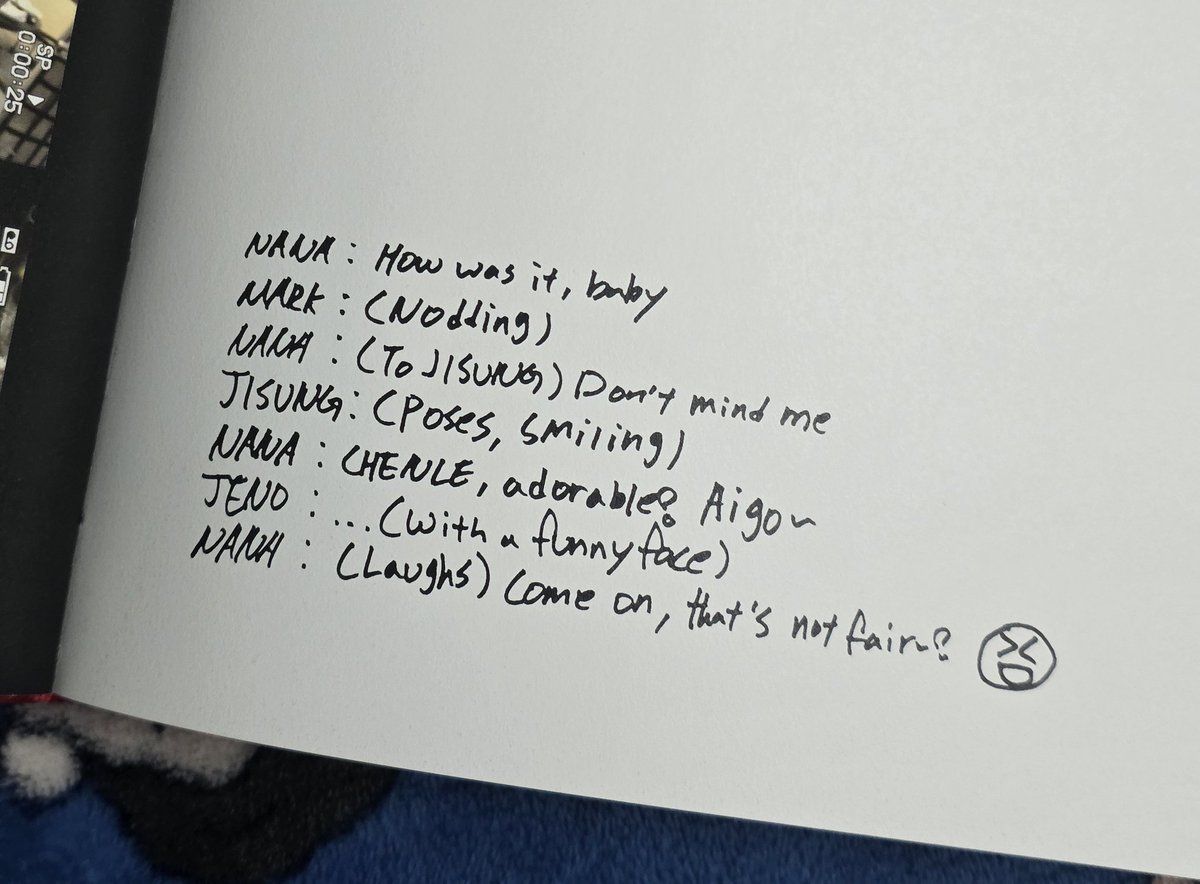 SP ▶
0:00:25
NANA : How was it, baby
MARK : (Nodding)
NANA : (To JISUNG) Don't mind me
JISUNG : (Poses, smiling)
NANA : CHENLE, adorable? Aigo~
JENO : ... (with a funny face)
NANA : (Laughs) Come on, that's not fair~?